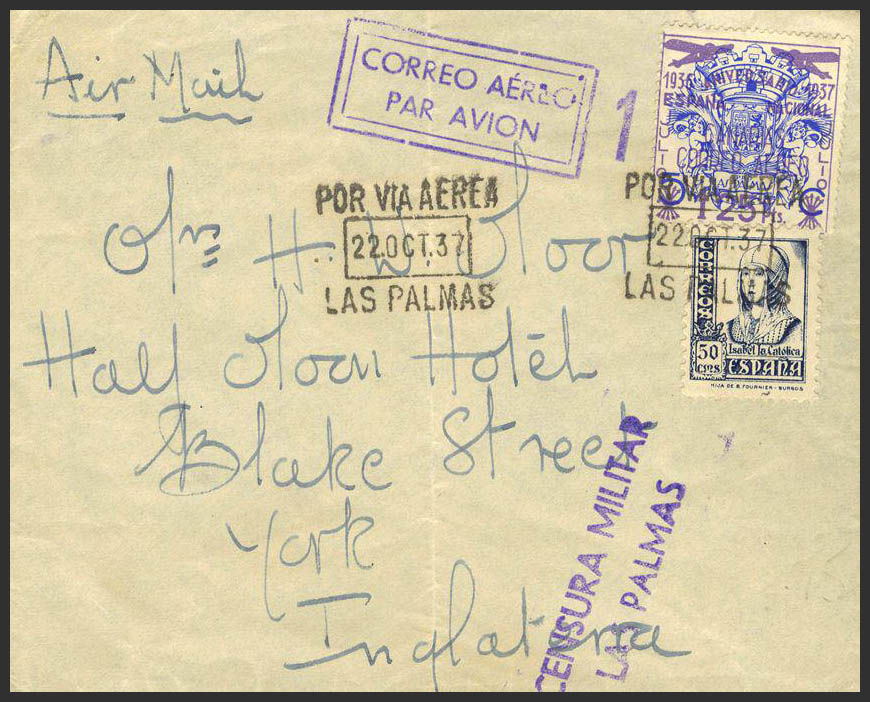 Air Mail
CORREO AÉREO
PAR AVION
1
1936 ANIVERSARIO 1937
ESPAÑA NACIONAL
CANARIAS
CORREO AEREO
1'25 Pts.
POR VIA AEREA
22.OCT.37
LAS PALMAS
POR VIA AEREA
22.OCT.37
LAS PALMAS
CORREOS
50
cms
Isabel la Católica
ESPAÑA
HIJA DE B. FOURNIER - BURGOS
H. W. Moor
Half Moon Hotel
Blake Street
York
Inglaterra
CENSURA MILITAR
LAS PALMAS